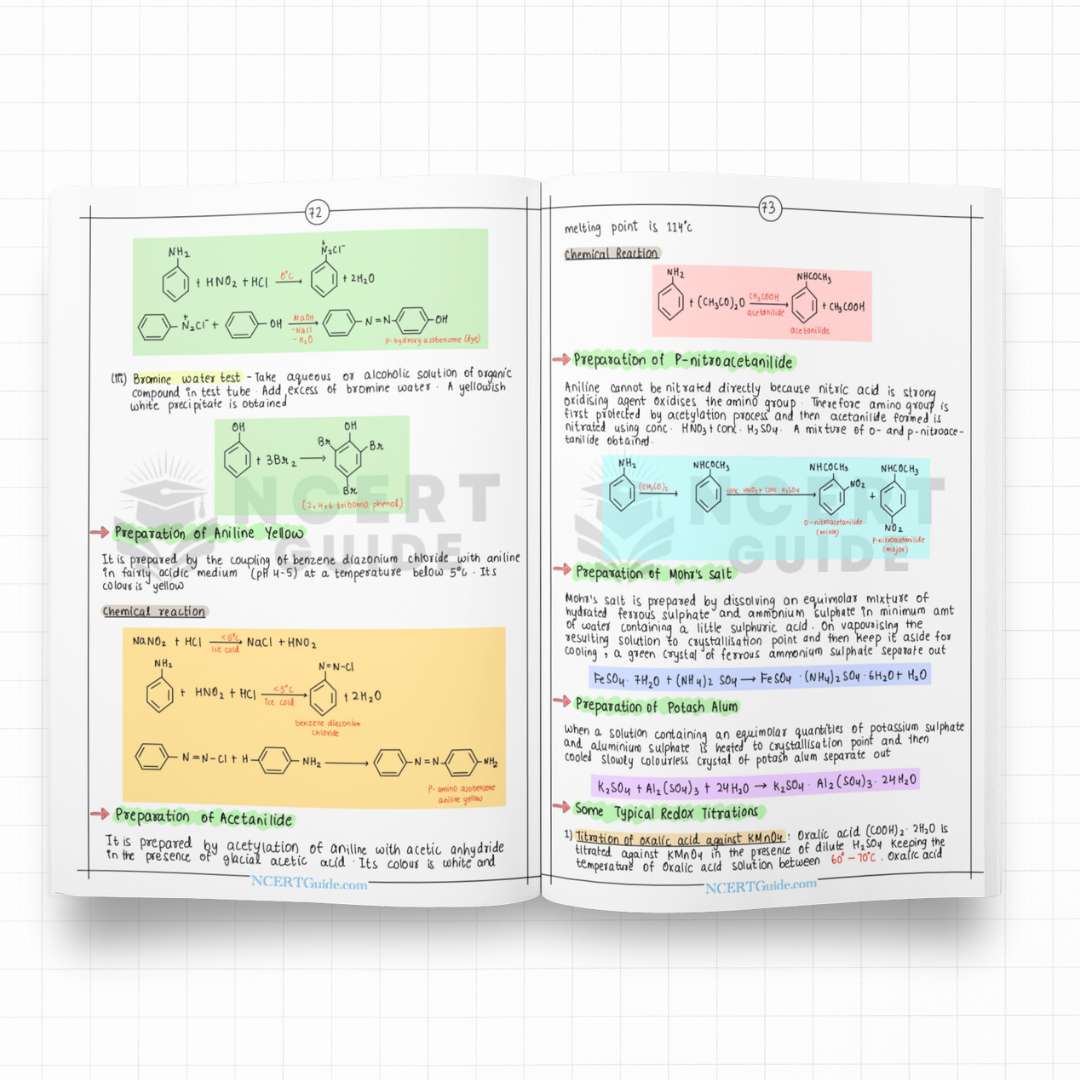 72
NH₂
N₂⁺Cl⁻
+ HNO₂ + HCl 0°C → + 2H₂O
N₂⁺Cl⁻ + OH NaOH -NaCl -H₂O → N=N OH
P-hydroxy azobenzene (dye)
(iii) Bromine water test - Take aqueous or alcoholic solution of organic
compound in test tube. Add excess of bromine water. A yellowish
white precipitate is obtained
OH
OH
Br Br
+ 3Br₂ →
Br
(2,4,6 tribomo phenol)
→ Preparation of Aniline Yellow
It is prepared by the coupling of benzene diazonium chloride with aniline
in fairly acidic medium (pH 4-5) at a temperature below 5°C. Its
colour is yellow
Chemical reaction
NaNO₂ + HCl <5°C Ice cold → NaCl + HNO₂
NH₂
N=N-Cl
+ HNO₂ + HCl <5°C Ice cold → + 2H₂O
benzene diazonium
chloride
N=N-Cl + H NH₂ → N=N NH₂
P-amino azobenzene
aniline yellow
→ Preparation of Acetanilide
It is prepared by acetylation of aniline with acetic anhydride
in the presence of glacial acetic acid. Its colour is white and
NCERTGuide.com
73
melting point is 114°C
Chemical Reaction
NH₂
NHCOCH₃
+ (CH₃CO)₂O CH₃COOH acetanilide → + CH₃COOH
acetanilide
→ Preparation of P-nitroacetanilide
Aniline cannot be nitrated directly because nitric acid is strong
oxidising agent oxidises the amino group. Therefore amino group is
first protected by acetylation process and then acetanilide formed is
nitrated using conc. HNO₃ + conc. H₂SO₄. A mixture of o- and p-nitroace-
tanilide obtained.
NH₂ NHCOCH₃ NHCOCH₃ NHCOCH₃
(CH₃CO)₂ → conc. HNO₃ + conc. H₂SO₄ → NO₂ +
NO₂
O-nitroacetanilide
(minor)
P-nitroacetanilide
(major)
→ Preparation of Mohr's salt
Mohr's salt is prepared by dissolving an equimolar mixture of
hydrated ferrous sulphate and ammonium sulphate in minimum amt
of water containing a little sulphuric acid. On vapourising the
resulting solution to crystallisation point and then keep it aside for
cooling, a green crystal of ferrous ammonium sulphate separate out
FeSO₄. 7H₂O + (NH₄)₂ SO₄ → FeSO₄ · (NH₄)₂ SO₄ · 6H₂O + H₂O
→ Preparation of Potash Alum
When a solution containing an equimolar quantities of potassium sulphate
and aluminium sulphate is heated to crystallisation point and then
cooled slowly colourless crystal of potash alum separate out
K₂SO₄ + Al₂(SO₄)₃ + 24H₂O → K₂SO₄. Al₂(SO₄)₃ · 24H₂O
→ Some Typical Redox Titrations
1) Titration of oxalic acid against KMnO₄: Oxalic acid (COOH)₂. 2H₂O is
titrated against KMnO₄ in the presence of dilute H₂SO₄ keeping the
temperature of Oxalic acid solution between 60°-70°C. Oxalic acid
NCERTGuide.com
NCERT
GUIDE
NCERT
GUIDE